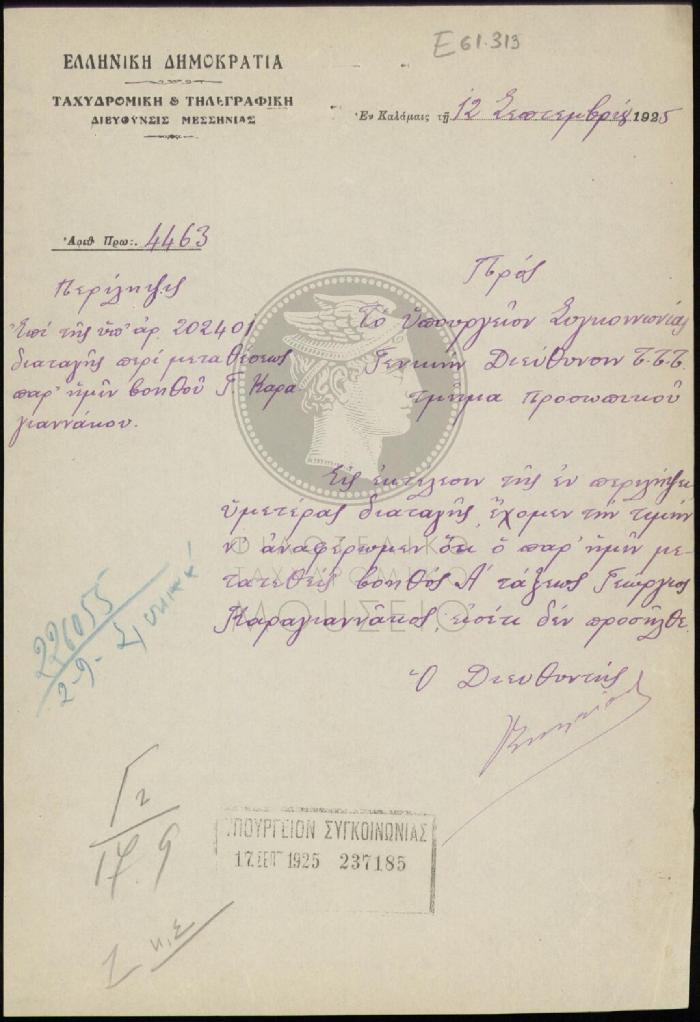 Ε 61.313
ΕΛΛΗΝΙΚΗ ΔΗΜΟΚΡΑΤΙΑ
ΤΑΧΥΔΡΟΜΙΚΗ & ΤΗΛΕΓΡΑΦΙΚΗ
ΔΙΕΥΘΥΝΣΙΣ ΜΕΣΣΗΝΙΑΣ
Ἐν Καλάμαις τῇ 12 Σεπτεμβρίου 1925
Ἀριθ Πρω: 4463
Περίληψις
Ἐπί τῆς ὑπ' ἀρ. 202401
διαταγῆς περί μεταθέσεως
παρ' ἡμῖν βοηθοῦ Γ. Καρα
γιαννάκου.
Πρός
Τό Ὑπουργεῖον Συγκοινωνίας
Γενικήν Διεύθυνσιν Τ.Τ.Τ.
τμῆμα Προσωπικοῦ
Εἰς ἐκτέλεσιν τῆς ἐν περιλήψει
ὑμετέρας διαταγῆς, ἔχομεν τήν τιμήν
ν' ἀναφέρωμεν ὅτι ὁ παρ' ἡμῖν με-
τατεθείς βοηθός Α' τάξεως Γεώργιος
Καραγιαννάκος, εἰσέτι δέν προσῆλθε.
Ὁ Διευθυντής
ΦΙΛΟΤΕΛΙΚΟ
ΤΑΧΥΔΡΟΜΙΚΟ
ΜΟΥΣΕΙΟ
226055
2-9-
Γ2
17.9
ΥΠΟΥΡΓΕΙΟΝ ΣΥΓΚΟΙΝΩΝΙΑΣ
17 ΣΕΠΤ 1925 237185